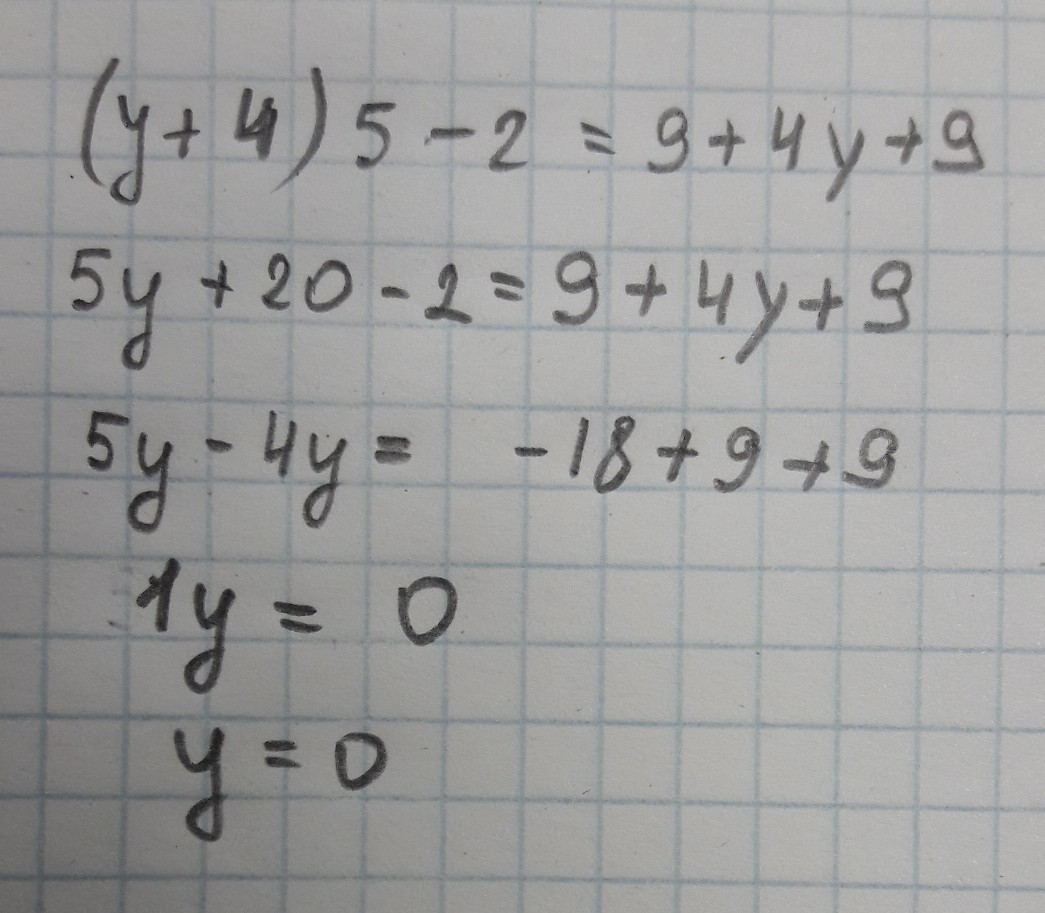 (y+4)5-2=9+4y+9
5y+20-2=9+4y+9
5y-4y= -18+9+9
1y=0
y=0